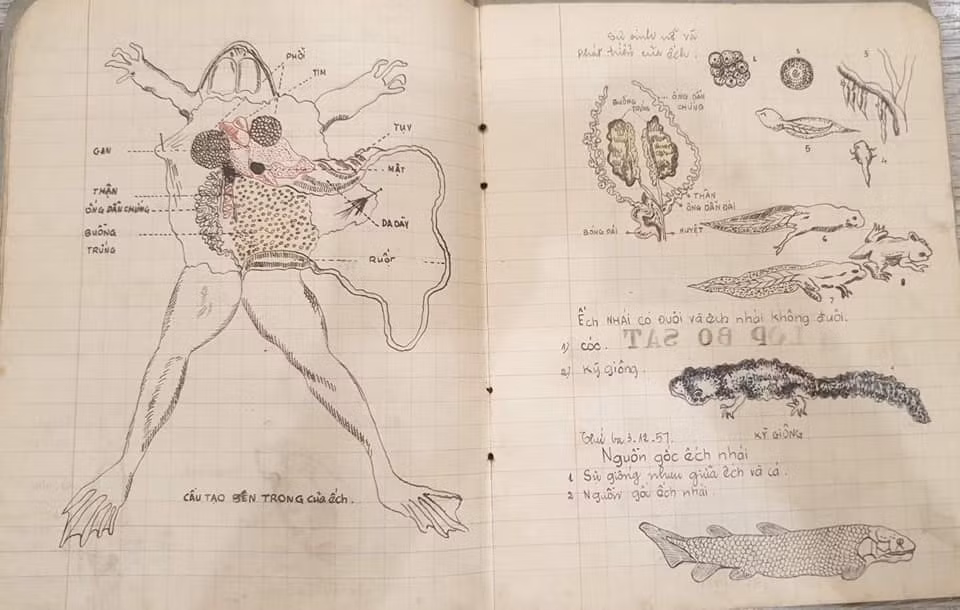 PHỔI
TIM
TỤY
GAN
MẬT
THẬN
ỐNG DẪN CHỨNG
DA DÀY
BUỒNG
TRỨNG
RUỘT
CẤU TẠO BÊN TRONG CỦA ẾCH.
Sự sinh nở và
phát triển của ếch.
1
2
3
BUỒNG
TRỨNG
ỐNG DẪN
CHỨNG
5
4
THẬN
ỐNG DẪN ĐÁI
BÓNG ĐÁI
HUYỆT
6
7
8
Ếch NHÁI CÓ ĐUÔI và ếch nhái không đuôi.
LỚP BÒ SÁT
1) cóc.
2) Kỳ giông.
Thứ ba 3.12.57.
KỲ GIÔNG
Nguồn gốc ếch nhái
1 Sự giống nhau giữa ếch và cá.
2 Nguồn gốc ếch nhái.